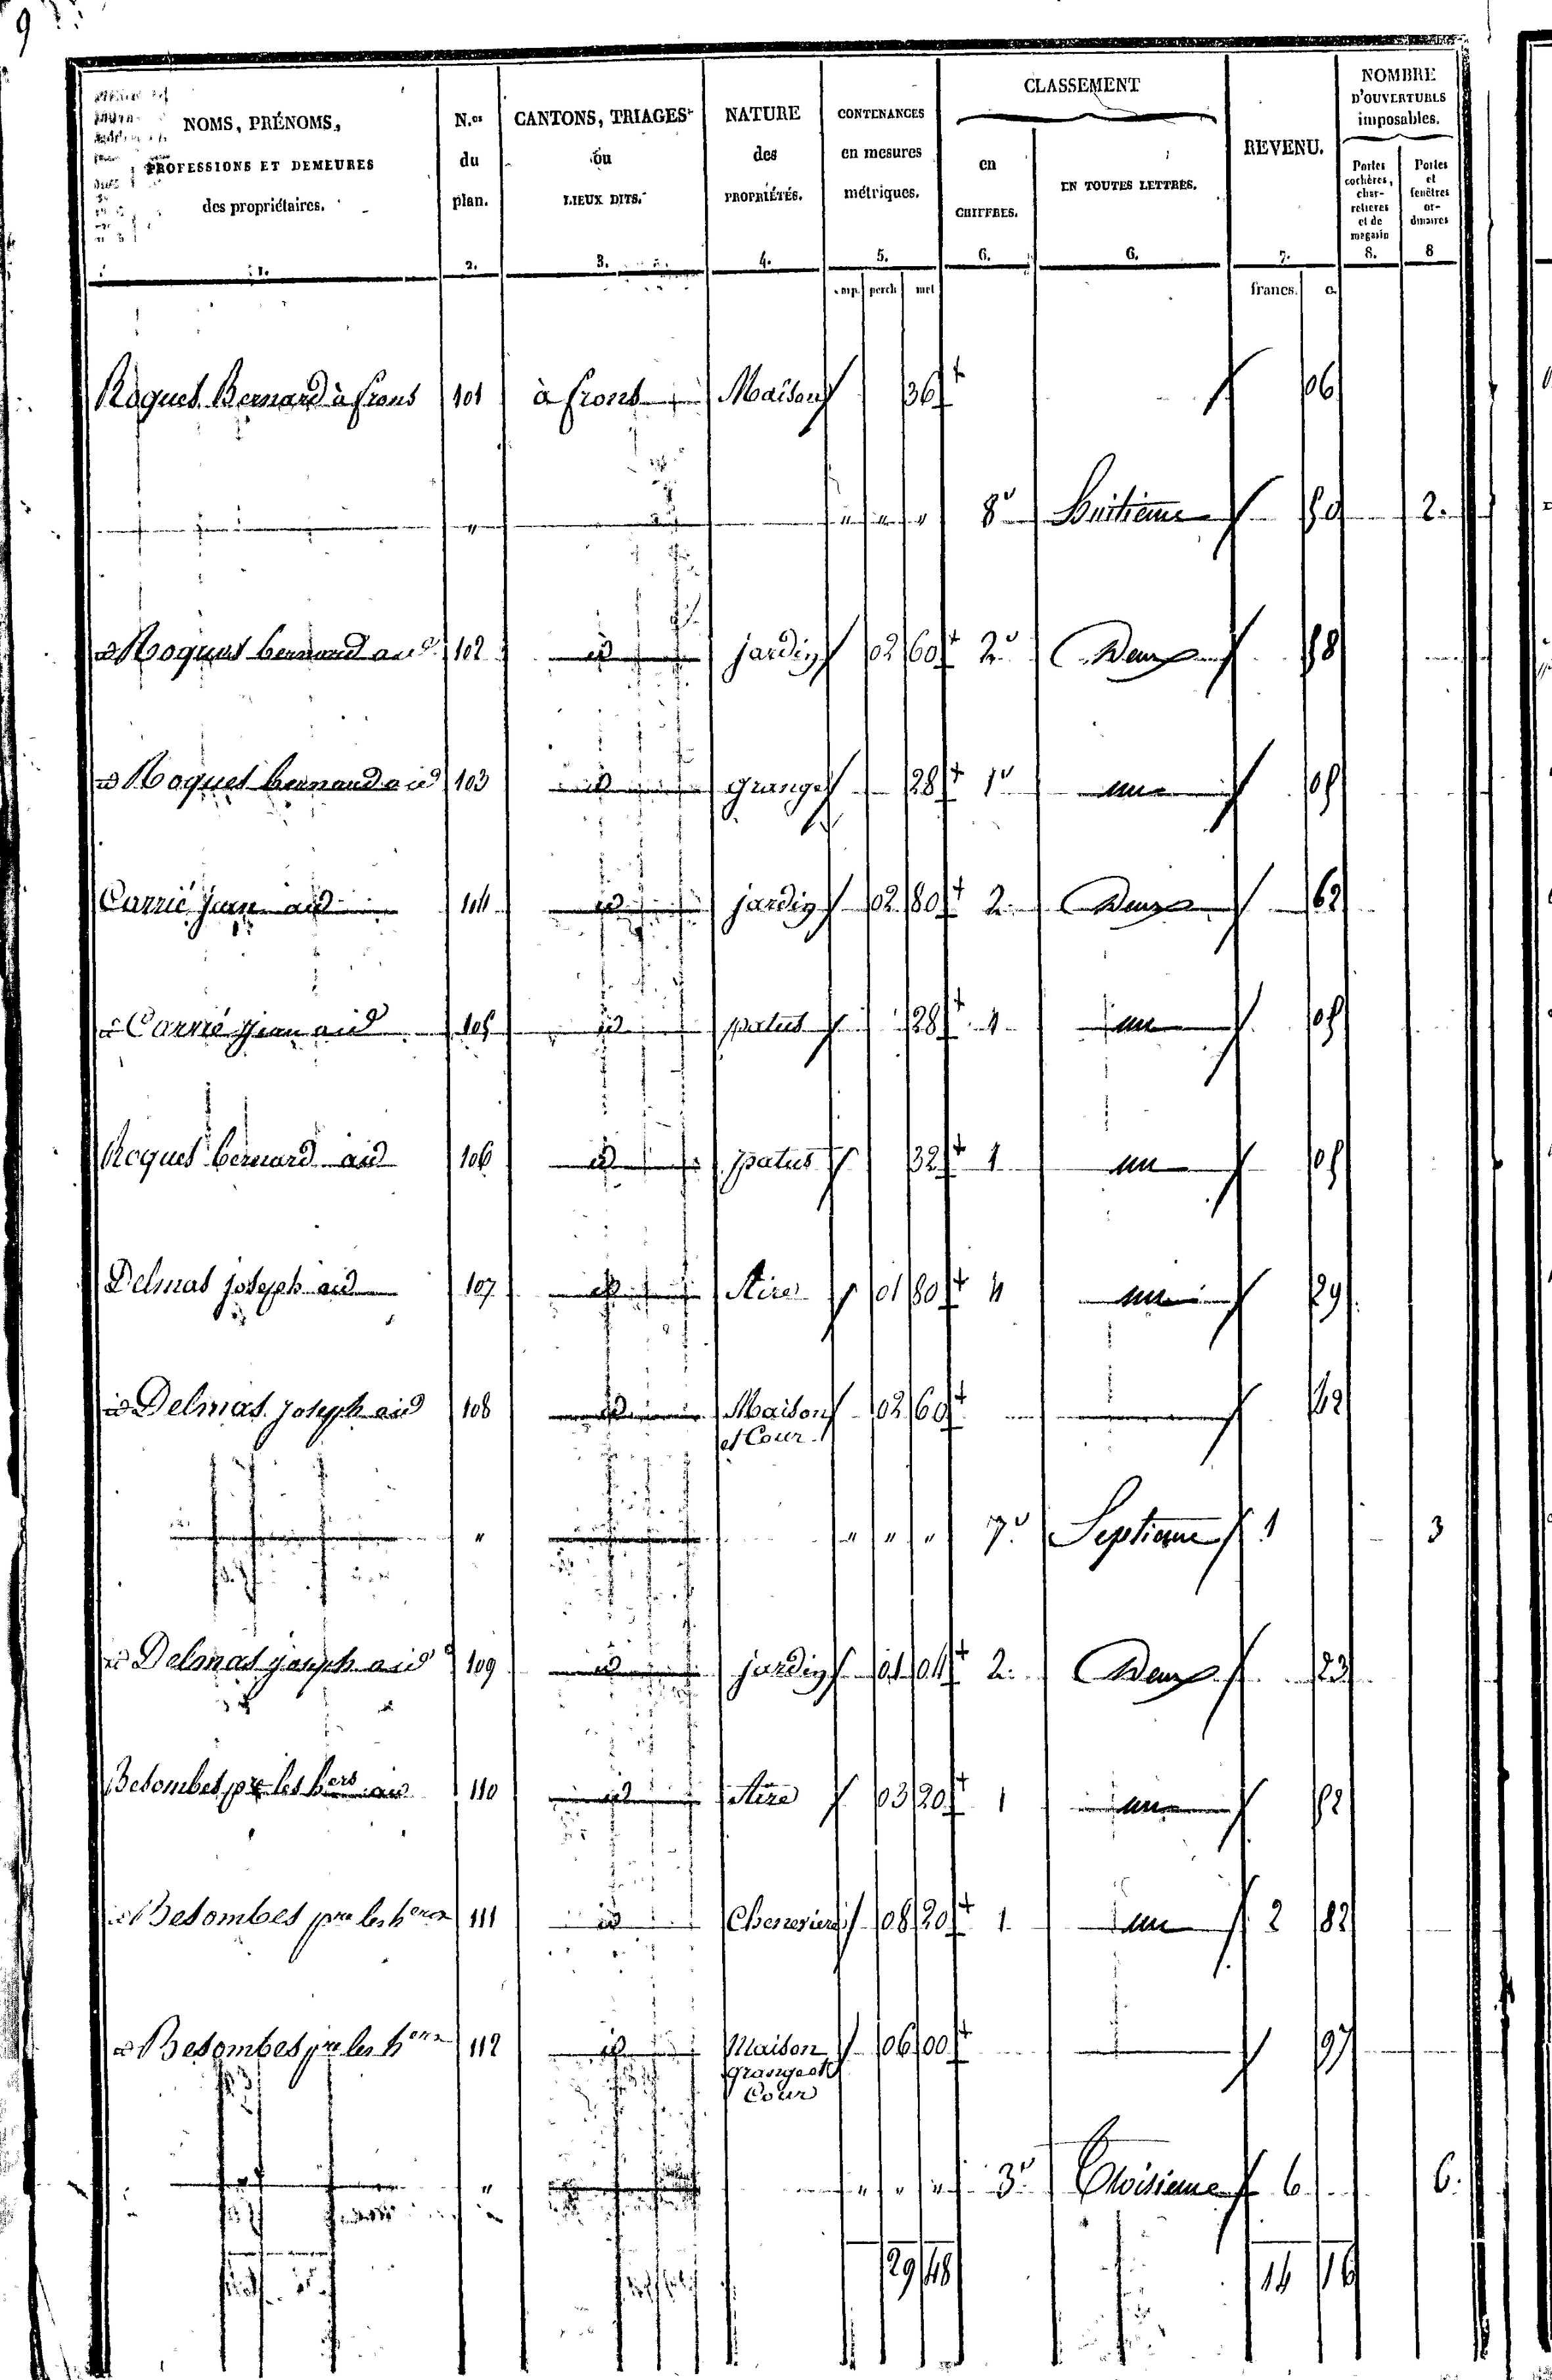 9
NOMS, PRÉNOMS,
PROFESSIONS ET DEMEURES
des propriétaires.
1.
N.os
du
plan.
2.
CANTONS, TRIAGES
ou
LIEUX DITS.
3.
NATURE
des
PROPRIÉTÉS.
4.
CONTENANCES
en mesures
métriques.
5.
CLASSEMENT
en
CHIFFRES.
6.
EN TOUTES LETTRES.
6.
REVENU.
7.
NOMBRE
D'OUVERTURES
imposables.
Portes
cochères,
char-
retières
et de
magasin
8.
Portes
et
fenêtres
or-
dinaires
8
perch met
francs. c.
Roques Bernard à frons 101 à frons Maison 36 06
" " " " 8e huitieme 50 2.
id Roques bernard a id 102 id jardin 02 60 2e Deux 58
id Roques bernard a id 103 id grange 28 1e un 05
Carrié jean a id 104 id jardin 02 80 2 Deux 62
id Carrié jean a id 105 id patus 28 1 un 05
Roques bernard a id 106 id patus 32 1 un 05
Delmas joseph a id 107 id Aire 01 80 " un 29
id Delmas joseph a id 108 id Maison 02 60 62
et Cour
" " " " 7e Septieme 1 3
id Delmas joseph a id 109 id jardin 01 04 2. Deux 23
Besombes pre les hers a id 110 id Aire 03 20 1 un 52
id Besombes pre les hers 111 id Cheneviere 08 20 1 un 2 82
id Besombes pre les hers 112 id Maison 06 00 97
grange et
Cour
" " " " 3e Troisieme 6 6.
29 48 14 16